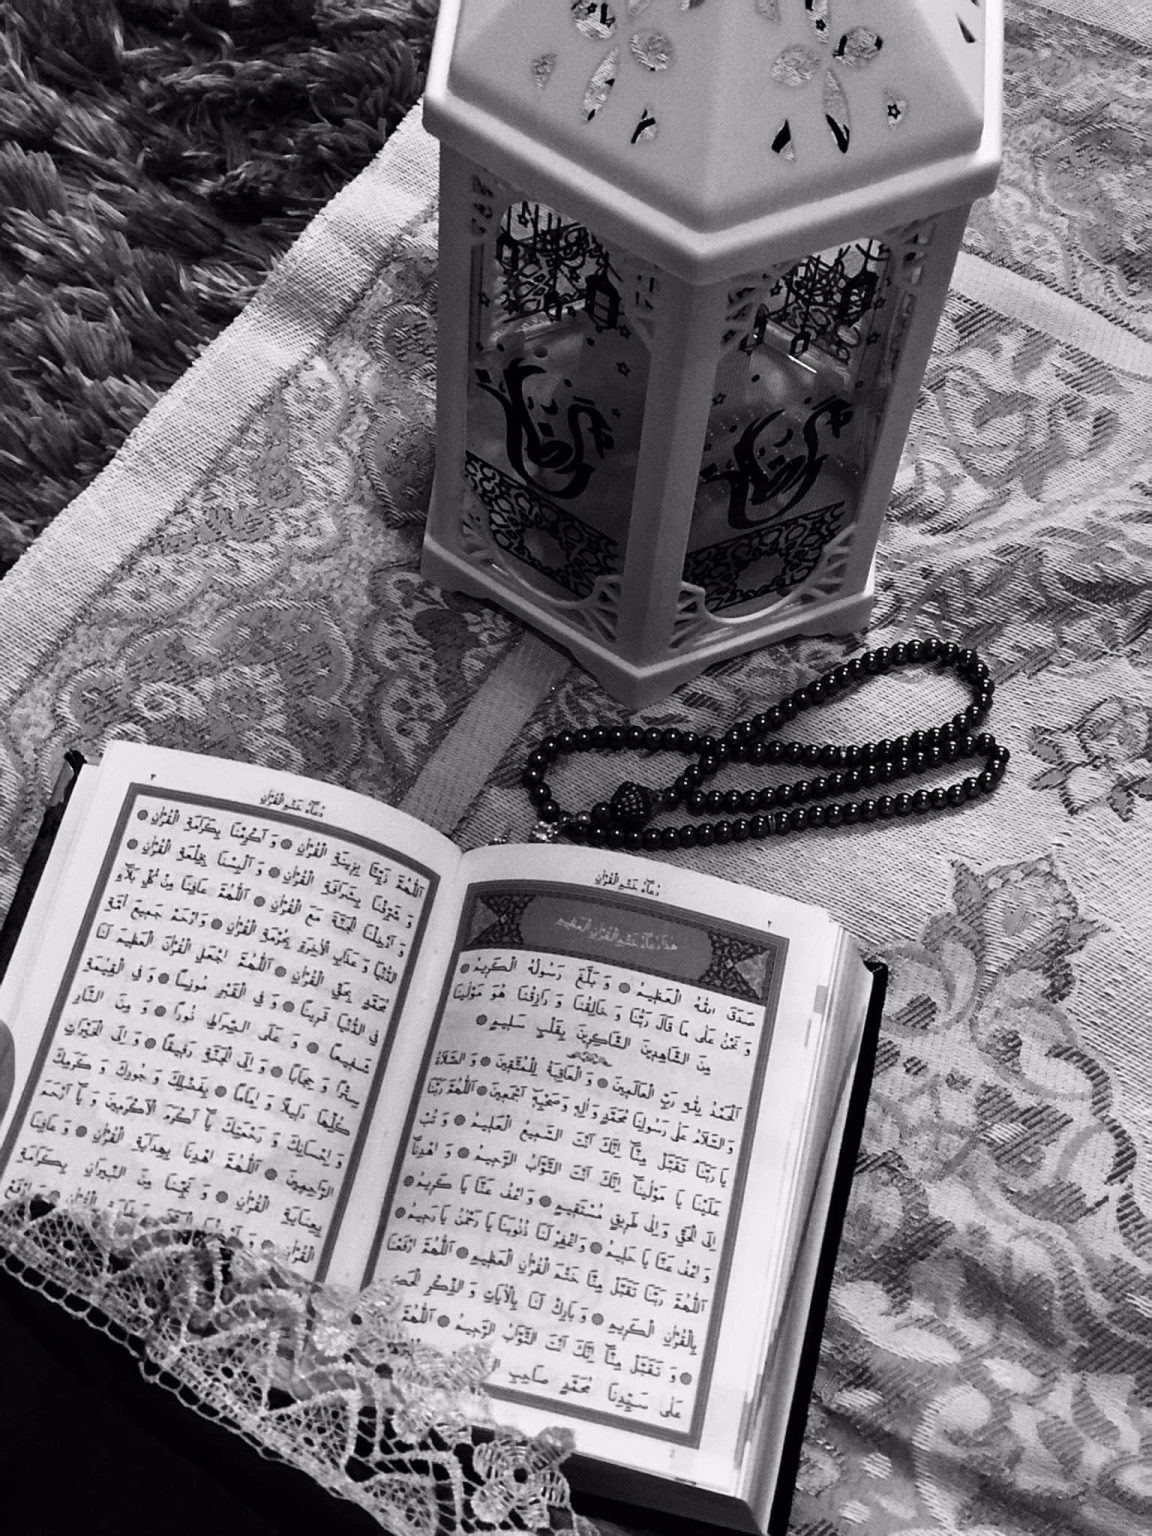 دُعَاءُ خَتْمِ الْقُرْآنِ
هٰذَا دُعَاءُ خَتْمِ الْقُرْآنِ الْعَظِيمِ
صَدَقَ اللّٰهُ الْعَظِيمُ ۞ وَ بَلَّغَ رَسُولُهُ الْكَرِيمُ ۞
وَ نَحْنُ عَلٰى مَا قَالَ رَبُّنَا وَ خَالِقُنَا وَ رَازِقُنَا هُوَ مَوْلٰينَا
مِنَ الشَّاهِدِينَ الشَّاكِرِينَ بِقَلْبٍ سَلِيمٍ ۞
اَلْحَمْدُ لِلّٰهِ رَبِّ الْعَالَمِينَ ۞ وَ الْعَاقِبَةُ لِلْمُتَّقِينَ ۞ وَ الصَّلَاةُ
وَ السَّلَامُ عَلٰى رَسُولِنَا مُحَمَّدٍ وَ اٰلِهِ وَ صَحْبِهِ اَجْمَعِينَ ۞ اَللّٰهُمَّ رَبَّنَا
يَا رَبَّنَا تَقَبَّلْ مِنَّا اِنَّكَ اَنْتَ السَّمِيعُ الْعَلِيمُ ۞ وَ تُبْ
عَلَيْنَا يَا مَوْلٰينَا اِنَّكَ اَنْتَ التَّوَّابُ الرَّحِيمُ ۞ وَ اهْدِنَا
اِلَى الْحَقِّ وَ اِلٰى طَرِيقٍ مُسْتَقِيمٍ ۞ وَ اعْفُ عَنَّا يَا كَرِيمُ ۞
وَ اعْفُ عَنَّا يَا حَلِيمُ ۞ وَ اغْفِرْ لَنَا ذُنُوبَنَا يَا رَحْمٰنُ يَا رَحِيمُ ۞
اَللّٰهُمَّ رَبَّنَا تَقَبَّلْ مِنَّا خَتْمَ الْقُرْآنِ الْعَظِيمِ ۞ اَللّٰهُمَّ ارْفَعْنَا
بِالْقُرْآنِ الْكَرِيمِ ۞ وَ بَارِكْ لَنَا بِالْاٰيَاتِ وَ الذِّكْرِ
۞ وَ تَقَبَّلْ مِنَّا اِنَّكَ اَنْتَ التَّوَّابُ الرَّحِيمُ ۞ اَللّٰهُمَّ
عَلٰى سَيِّدِنَا مُحَمَّدٍ صَاحِبِ
٢
دُعَاءُ خَتْمِ الْقُرْآنِ
اَللّٰهُمَّ زَيِّنَّا بِزِينَةِ الْقُرْآنِ ۞ وَ اَكْرِمْنَا بِكَرَامَةِ الْقُرْآنِ ۞
وَ شَرِّفْنَا بِشَرَافَةِ الْقُرْآنِ ۞ وَ اَلْبِسْنَا بِخِلْعَةِ الْقُرْآنِ ۞
وَ اَدْخِلْنَا الْجَنَّةَ مَعَ الْقُرْآنِ ۞ اَللّٰهُمَّ عَافِنَا مِنْ كُلِّ بَلَاءِ
الدُّنْيَا وَ عَذَابِ الْاٰخِرَةِ بِحُرْمَةِ الْقُرْآنِ ۞ وَ ارْحَمْ جَمِيعَ اُمَّةِ
مُحَمَّدٍ بِحَقِّ الْقُرْآنِ ۞ اَللّٰهُمَّ اجْعَلِ الْقُرْآنَ الْعَظِيمَ لَنَا
فِي الدُّنْيَا قَرِينًا ۞ وَ فِي الْقَبْرِ مُونِسًا ۞ وَ فِي الْقِيٰمَةِ
شَفِيعًا ۞ وَ عَلَى الصِّرَاطِ نُورًا ۞ وَ مِنَ النَّارِ
سِتْرًا وَ حِجَابًا ۞ وَ اِلَى الْجَنَّةِ رَفِيقًا ۞ وَ اِلَى الْخَيْرَاتِ
كُلِّهَا دَلِيلًا وَ اِمَامًا ۞ بِفَضْلِكَ وَ جُودِكَ وَ كَرَمِكَ
وَ اِحْسَانِكَ وَ رَحْمَتِكَ يَا اَكْرَمَ الْاَكْرَمِينَ وَ يَا اَرْحَمَ
الرَّاحِمِينَ ۞ اَللّٰهُمَّ اهْدِنَا بِهِدَايَةِ الْقُرْآنِ ۞ وَ عَافِنَا
بِعِنَايَةِ الْقُرْآنِ ۞ وَ نَجِّنَا مِنَ النِّيرَانِ بِكَرَامَةِ
الْقُرْآنِ ۞